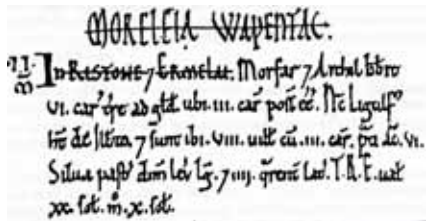 MORELEIA WAPENTAC.
II. M̃ In RESTONE ⁊ ERMELAT. Morfar ⁊ Archil hb̃r
VI. car̃ t̃re ad gld̃. ubi. III. car̃ poss̃ ẽe. Nc̃ Ligulf⁹
ht̃ de ilb̃to. ⁊ sunt ibi. VIII. uilli cũ. III. car̃. p̃a ac̃. VI.
Silua past̃ dim̃ leũ lg̃. ⁊ IIII. q̃rent̃ lat̃. T.R.E. ual̃
xx. sol̃. m̊. x. sol̃.